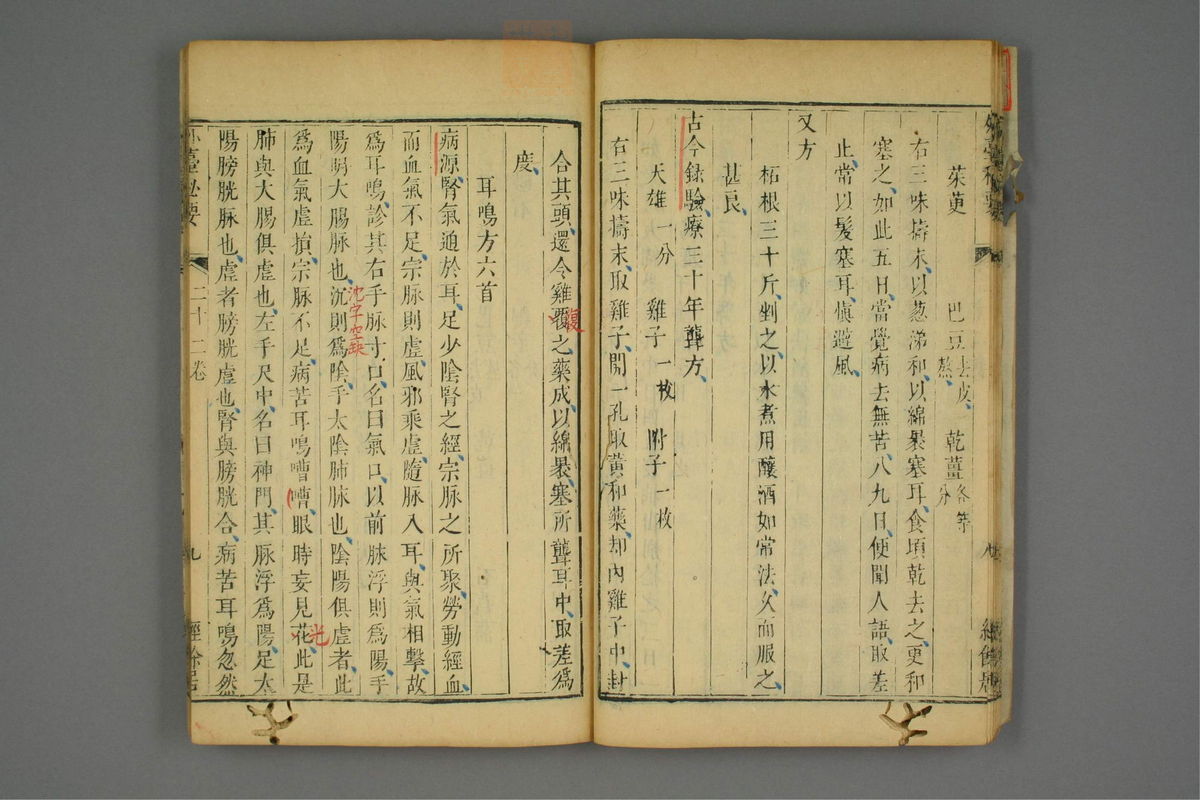 茱萸　巴豆去皮熬　乾薑各等分
右三味擣末以葱涕和以綿裹塞耳食頃乾去之更和
塞之如此五日當覺病去無苦八九日便聞人語取差
止常以髮塞耳慎避風
又方
柘根三十斤剉之以水煮用釀酒如常法久而服之
甚良
古今録驗療三十年聾方
天雄一分　雞子一枚　附子一枚
右三味擣末取雞子開一孔取黃和藥却內雞子中封
合其頭還令雞覆之藥成以綿裹塞所聾耳中取差爲
度
復
耳鳴方六首
病源腎氣通於耳足少陰腎之經宗脉之所聚勞動經血
而血氣不足宗脉則虛風邪乘虛隨脉入耳與氣相擊故
爲耳鳴診其右手脉寸口名曰氣口以前脉浮則爲陽手
陽明大腸脉也沉則爲陰手太陰肺脉也陰陽俱虛者此
沈字空缺
爲血氣虛損宗脉不足病苦耳鳴嘈嘈眼時妄見花此是
光
肺與大腸俱虛也左手尺中名曰神門其脉浮爲陽足太
陽膀胱脉也虛者膀胱虛也腎與膀胱合病苦耳鳴忽然
外臺秘要　二十二卷　九　經餘居